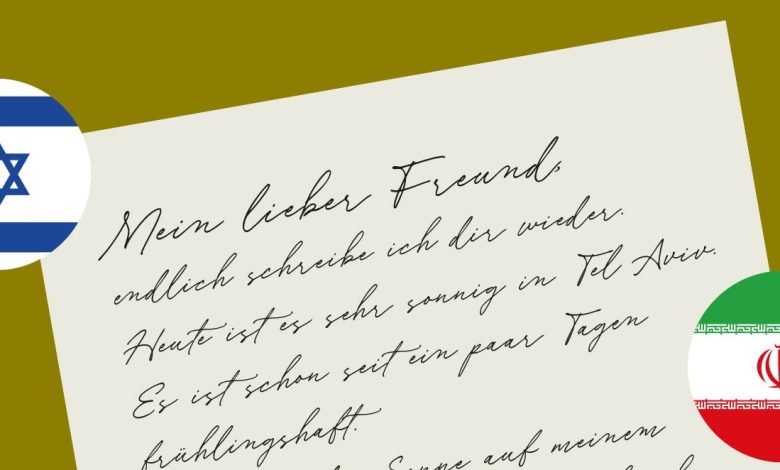 Mein lieber Freund,
endlich schreibe ich dir wieder.
Heute ist es sehr sonnig in Tel Aviv.
Es ist schon seit ein paar Tagen
frühlingshaft.
Sonne auf meinem